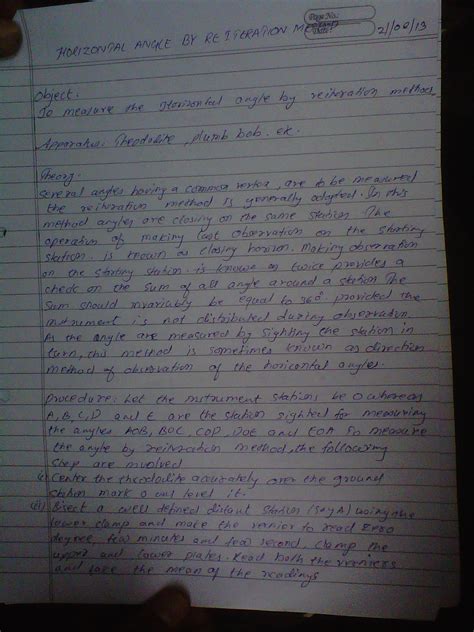 Page No.:
Date:
21/08/13
HORIZONTAL ANGLE BY REITERATION METHOD
Object.
To measure the Horizontal angle by reiteration method.
Apparatus: Theodolite, plumb bob. etc.
Theory.
Several angles having a common vertex, are to be measured
the reiteration method is generally adopted. In this
method angles are closing on the same station. The
operation of making last observation on the starting
station. is known as closing horizon. Making observation
on the starting station. is known as twice provides a
check on the sum of all angle around a station The
Sum should invariably be equal to 360° provided the
instrument is not distributed during observation.
As the angle are measured by sighting the station in
turn, this method is sometimes known as direction
method of observation of the horizontal angles.
procedure: Let the instrument stations be O whereas
A, B, C, D and E are the station sighted for measuring
the angles AOB, BOC, COD, DOE and EOA To measure
the angle by reiteration method, the following
step are involved
(i) Center the theodolite accurately over the ground
station mark O and level it.
(ii) Bisect a well defined distant station (say A) using the
lower clamp and make the vernier to read zero
degree, few minutes and few second. Clamp the
upper and lower plates. Read both the verniers
and take the mean of the readings